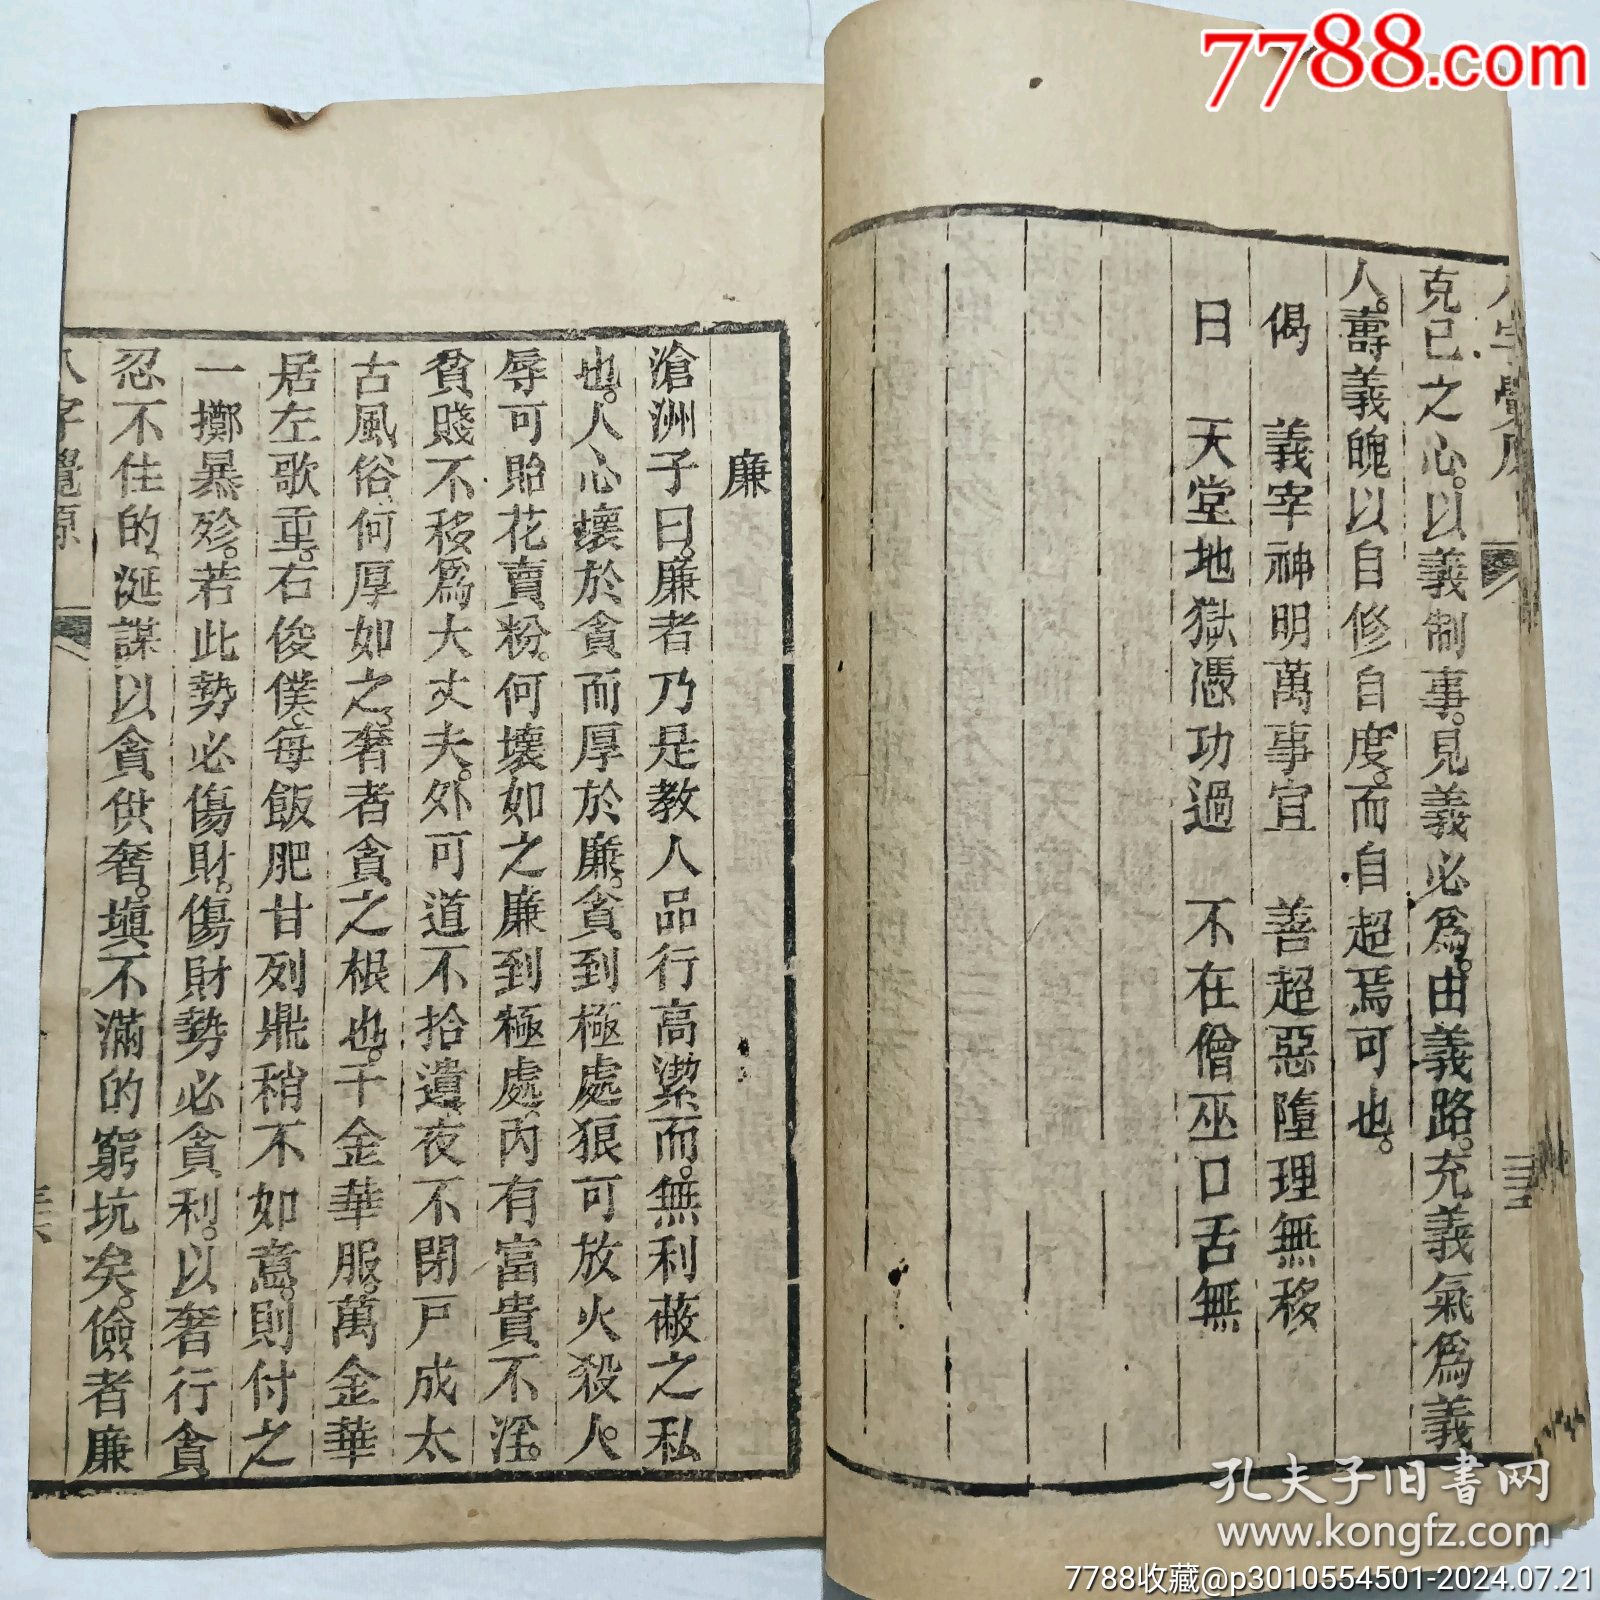 7788.com
克己之心。以義制事。見義必為。由義路。充義氣為義
人。壽義魄以自修自度。而自超焉可也。
偈 義宰神明萬事宜 善超惡隨理無移
曰 天堂地獄憑功過 不在僧巫口舌無
三五
廉
滄洲子曰。廉者乃是教人品行高潔而。無利蔽之私
也。人心壞於貪而厚於廉。貪到極處狠可放火殺人。
辱可貽花賣粉。何壞如之廉到極處、內有富貴不淫。
貧賤不移為大丈夫。外可道不拾遺、夜不閉戶成太
古風俗、何厚如之。奢者貪之根也。千金華服。萬金華
居左歌重。右俊僕。每飯肥甘列鼎稍不如意。則付之
一擲暴殄。若此勢必傷財。傷財勢必貪利。以奢行貪
忍不住的、涎謀以貪供奢。填不滿的窮坑矣。儉者廉
八字覺源
三六
孔夫子旧书网
www.kongfz.com
7788收藏@p3010554501-2024.07.21